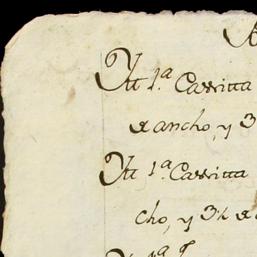 Ytt 1.ª Casritta
de ancho, y 3
Ytt 1.ª Casritta
cho, y 3¼ de